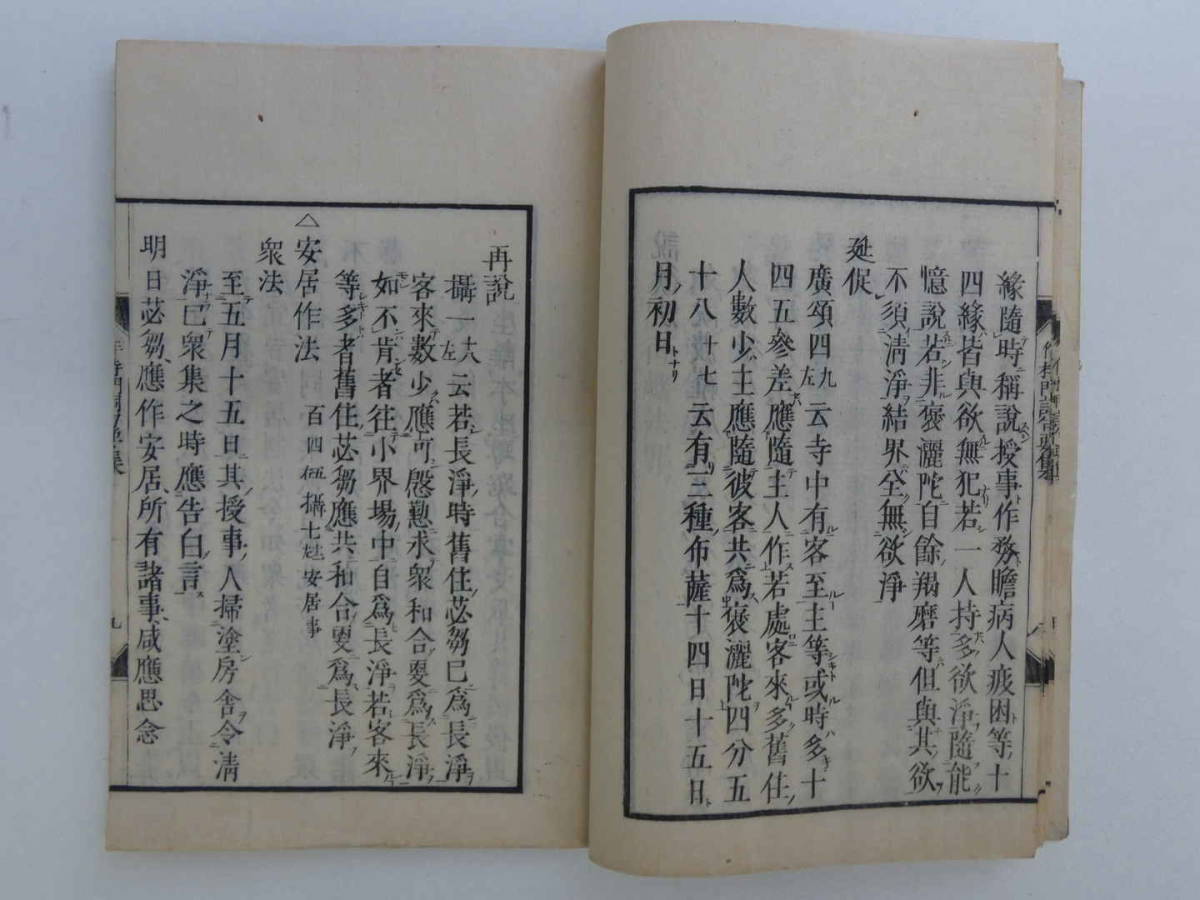 緣隨時稱說授事作務瞻病人疲困等十
四緣皆與欲無犯若一人持多欲淨隨能
憶說若非褒灑陀自餘羯磨等但與其欲
不須清淨結界全無欲淨
延促
廣頌四九云寺中有客至主等或時多十
四五參差應隨主人作若處客來多舊住
人數少主應隨彼客共爲褒灑陀四分五
十八十七云有三種布薩十四日十五日
月初日トナリ
再說
攝一十六左云若長淨時舊住苾芻已爲長淨
客來數少應可慇懃求衆和合更爲長淨
如不肯者往小界場中自爲長淨若客來
等多者舊住苾芻應共和合更爲長淨
△安居作法 百四 攝七 安居事
衆法
至五月十五日其授事人掃塗房舍令清
淨已衆集之時應告白言
明日苾芻應作安居所有諸事咸應思念